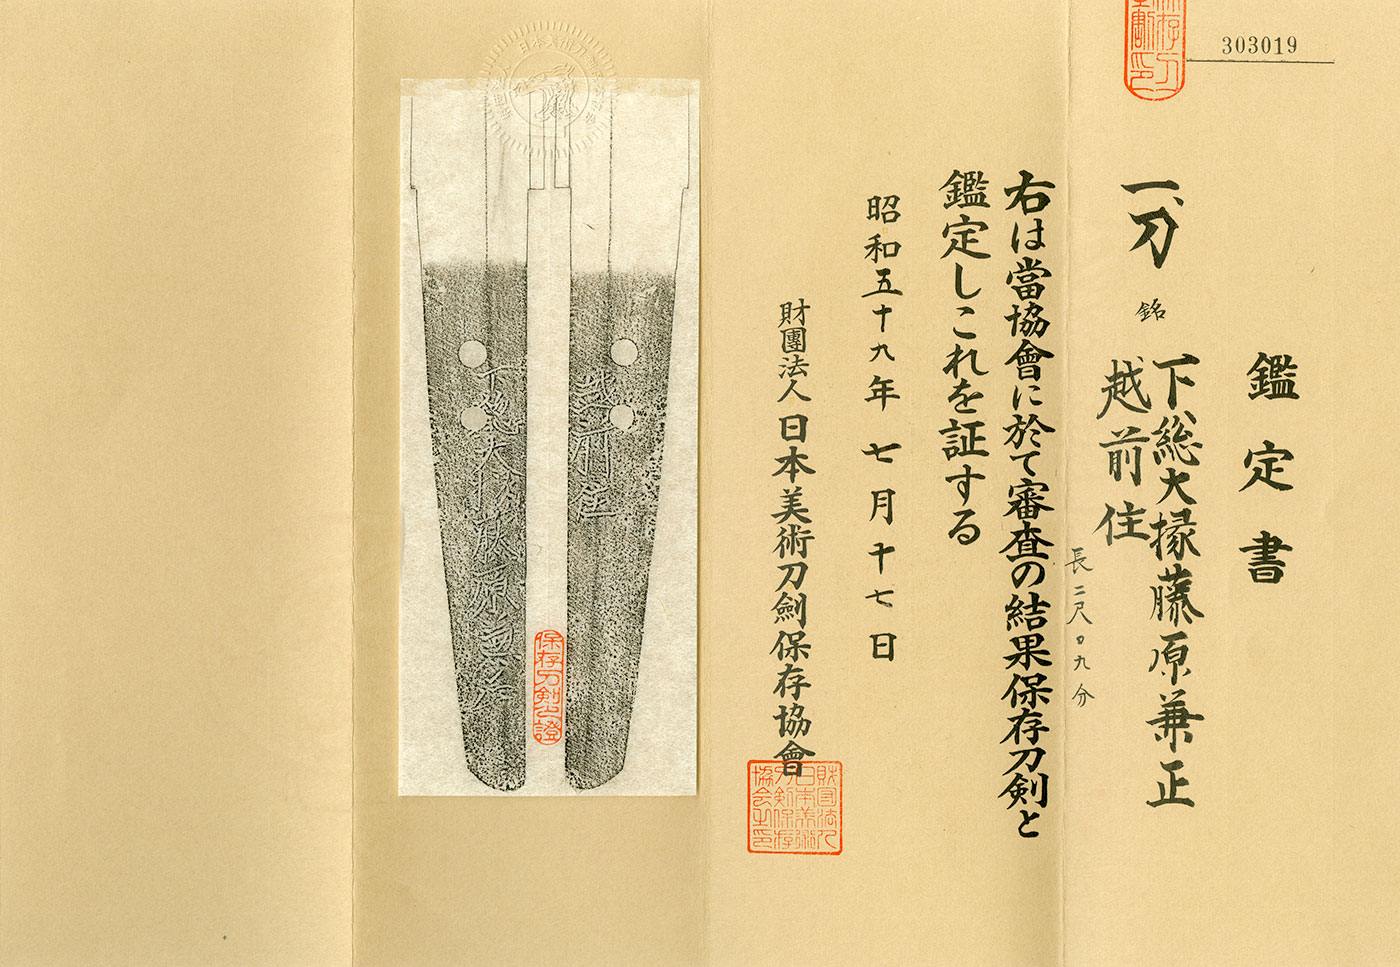 303019
鑑定書
一、刀
銘
下総大掾藤原兼正
越前住
長二尺〇九分
右は當協會に於て審査の結果保存刀剣と
鑑定しこれを証する
昭和五十九年七月十七日
財團法人日本美術刀劍保存協會
財団法人
日本美術
刀剣保存
協会之印
越前住
下総大掾藤原兼正
保存刀剣之證